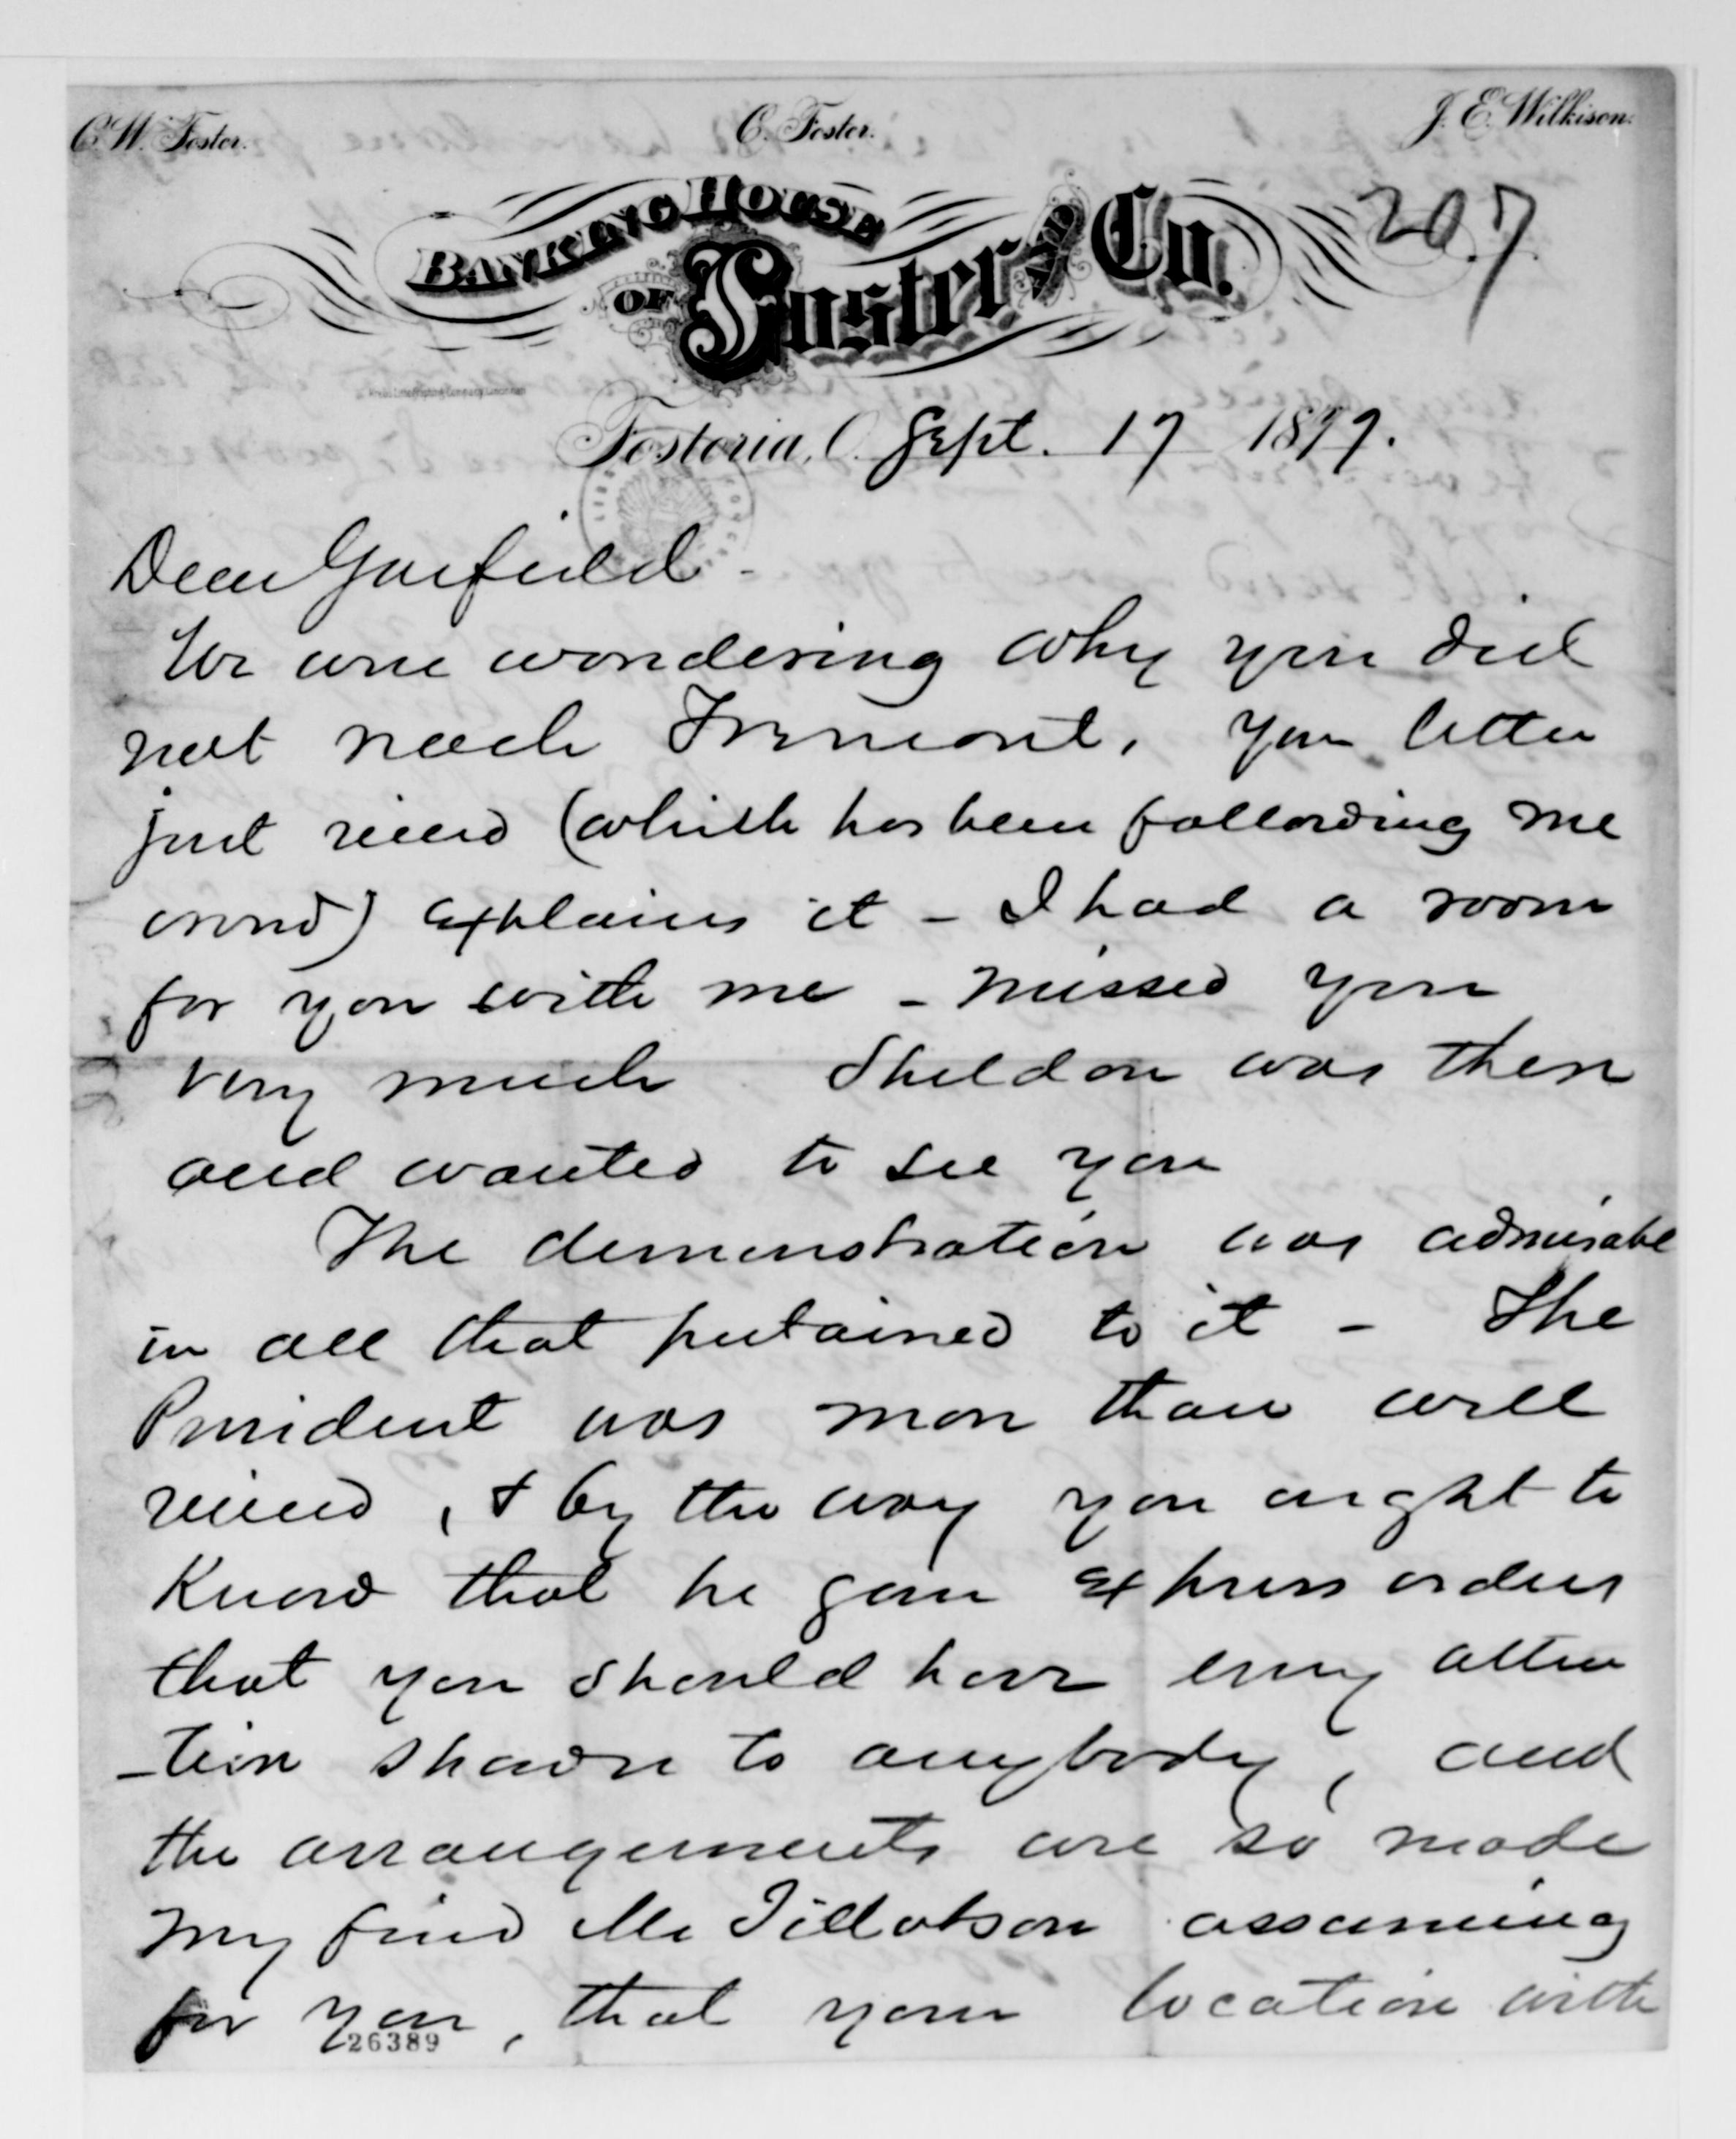 C. W. Foster. C. Foster. J. E. Wilkison.
BANKING HOUSE
OF Foster AND Co.
207
Fostoria, O. Sept. 17 1877.
Dear Garfield -
We were wondering why you did
not reach Fremont. Your letter
just recd (which has been following me
around) explains it - I had a room
for you with me - missed you
very much Sheldon was there
and wanted to see you
The demonstration was admirable
in all that pertained to it - The
President was more than well
received, & by the way you ought to
know that he gave express orders
that you should have every atten
-tion shown to anybody, and
the arrangements were so made
my friend Mr Tillotson assuming
for you, that your location with
26389